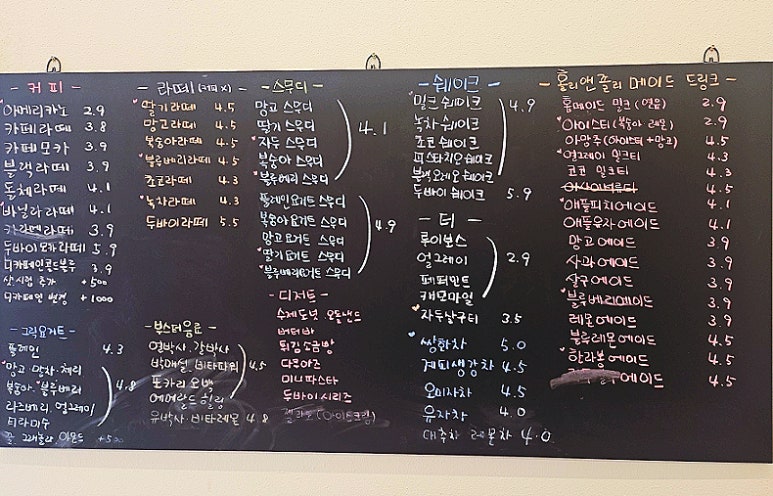 - 커피 -
아메리카노 2.9
카페라떼 3.8
카페모카 3.9
블랙라떼 3.9
돌체라떼 4.1
바닐라라떼 4.1
카라멜라떼 3.9
두바이모카라떼 5.9
디카페인콜드블루 3.9
샷, 시럽 추가 +500
디카페인 변경 +1000
- 그릭요거트 -
플레인 4.3
망고. 말차. 체리
복숭아. 블루베리 4.8
라즈베리. 얼그레이
티라미수
꿀. 그래놀라. 아몬드 +500
- 라떼 (커피 X) -
딸기라떼 4.5
망고라떼 4.5
복숭아라떼 4.5
블루베리라떼 4.5
초코라떼 4.3
녹차라떼 4.3
두바이라떼 5.5
- 부스터음료 -
얼박사. 갈박사
박매실. 비타파워 4.5
포카리 오박
에메랄드 힐링
유박사. 비타레몬 4.8
- 스무디 -
망고 스무디
딸기 스무디
자두 스무디 4.1
복숭아 스무디
블루베리 스무디
플레인요거트 스무디
복숭아요거트 스무디
망고요거트 스무디 4.9
딸기요거트 스무디
블루베리요거트 스무디
- 디저트 -
수제도넛. 오돌샌드
버터바
튀김소금빵
다쿠아즈
미니파스타
두바이시리즈
젤라또 (아이스크림)
- 쉐이크 -
밀크쉐이크 4.9
녹차쉐이크
초코쉐이크
피스타치오쉐이크
블랙오레오쉐이크
두바이쉐이크 5.9
- 티 -
루이보스
얼그레이 2.9
페퍼민트
캐모마일
자두살구티 3.5
쌍화차 5.0
계피생강차 4.5
오미자차 4.5
유자차 4.0
대추차 레몬차 4.0
- 홀리앤졸리 메이드 드링크 -
홈메이드 밀크 2.9
아이스티 (복숭아 레몬) 2.9
아망추 (아이스티+망고) 4.5
얼그레이 밀크티 4.3
코코 밀크티 4.3
4.5
애플피치에이드 4.1
애플유자에이드 4.1
망고에이드 3.9
사과에이드 3.9
살구에이드 3.9
블루베리에이드 3.9
레몬에이드 3.9
블루레몬에이드 4.5
한라봉에이드 4.5
에이드 4.5